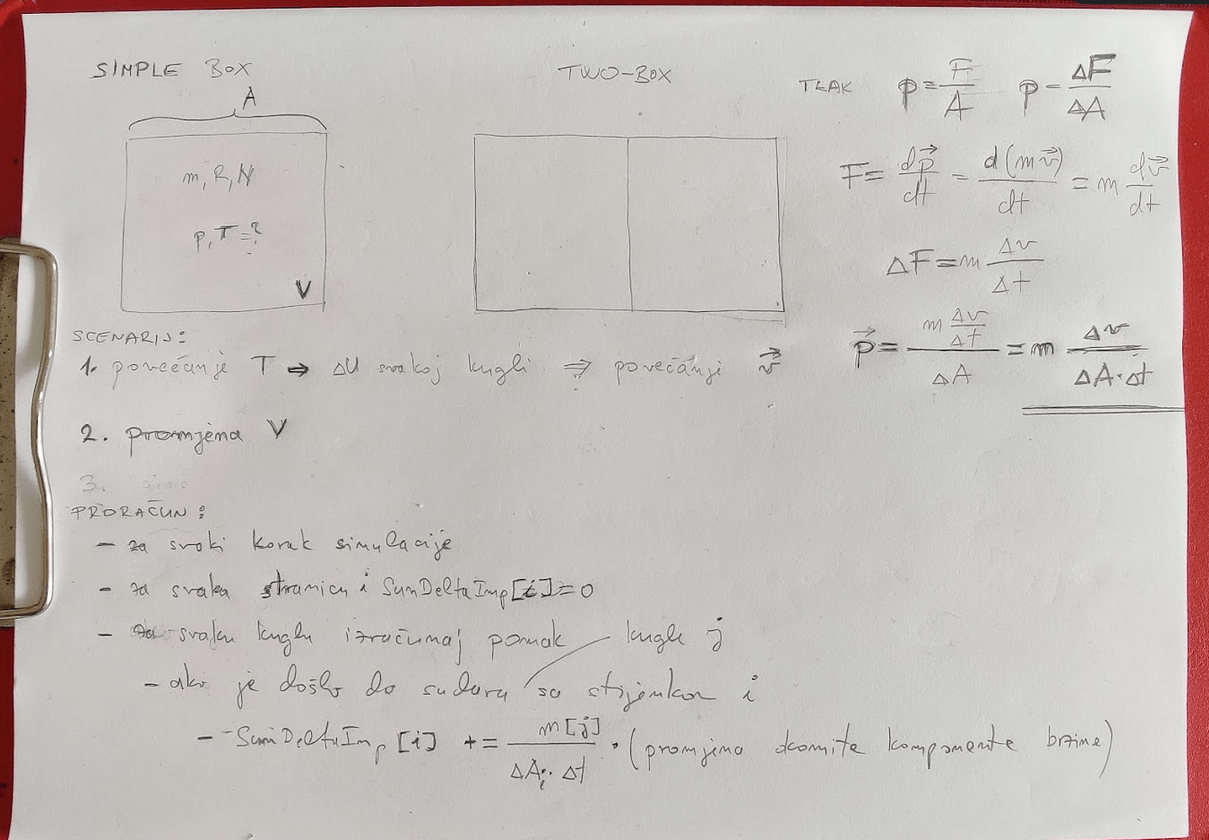 SIMPLE BOX
A
m, R, N
p, T = ?
V
TWO-BOX
TLAK p = F/A p = ΔF/ΔA
F = dp⃗/dt = d(mv⃗)/dt = m dv⃗/dt
ΔF = m Δv/Δt
p⃗ = (m Δv/Δt)/ΔA = m Δv/(ΔA·Δt)
SCENARIJ:
1. povećanje T ⇒ ΔU svakoj kugli ⇒ povećanji v⃗
2. promjena V
3.
PRORAČUN:
- za svaki korak simulacije
- za svaku stranicu i SumDeltaImp[i]=0
- za svaku kuglu izračunaj pomak
- ako je došlo do sudara kugle j sa stijenkom i
- SumDeltaImp[i] += m[j]/(ΔAi·Δt) · (promjena okomite komponente brzine)